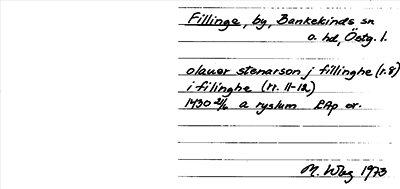 Fillinge, by, Bankekinds sn
o. hd, Östg. l.
olauer stenarson j fillinghe (r.8)
i filinghe (rr. 11-12)
1430 21/6 a ryslum RAp or.
M. Wbg 1973